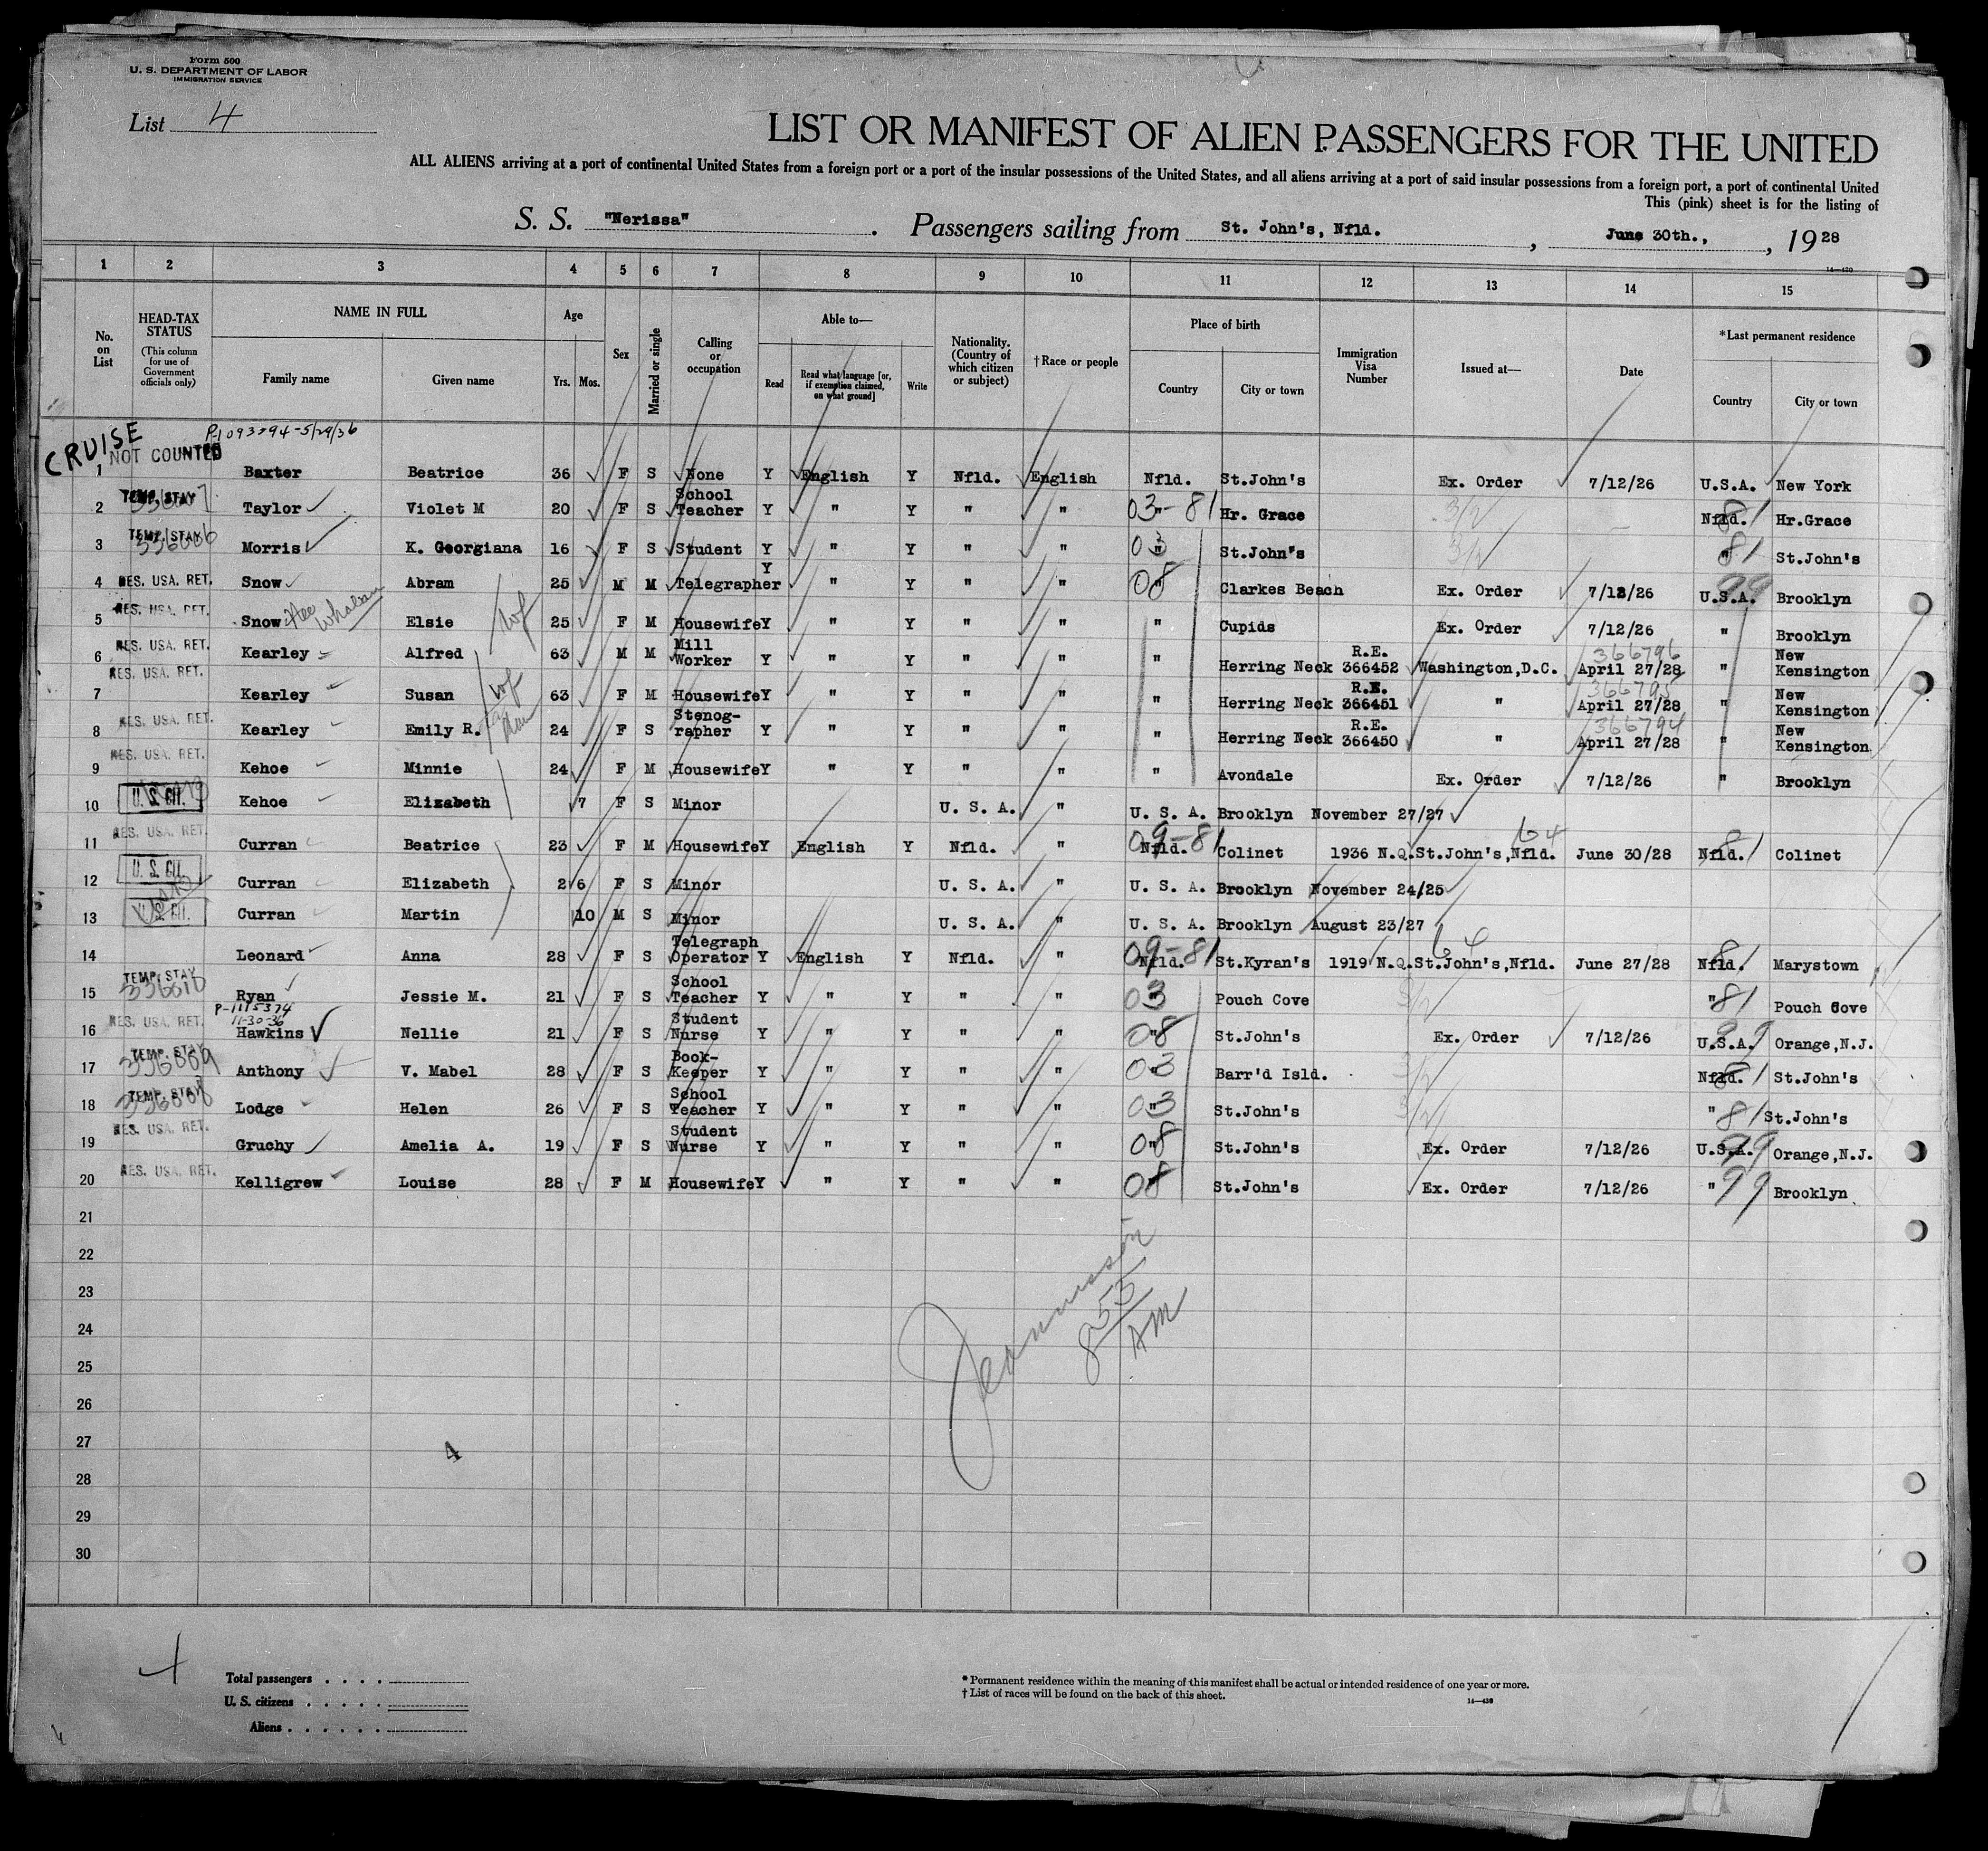 Form 500
U. S. DEPARTMENT OF LABOR
IMMIGRATION SERVICE
List 4
LIST OR MANIFEST OF ALIEN PASSENGERS FOR THE UNITED
ALL ALIENS arriving at a port of continental United States from a foreign port or a port of the insular possessions of the United States, and all aliens arriving at a port of said insular possessions from a foreign port, a port of continental United
This (pink) sheet is for the listing of
S. S. "Nerissa". Passengers sailing from St. John's, Nfld., June 30th., , 1928
14-430
1 2 3 4 5 6 7 8 9 10 11 12 13 14 15
No. on List
HEAD-TAX STATUS
(This column for use of Government officials only)
NAME IN FULL
Family name Given name
Age
Yrs. Mos.
Sex
Married or single
Calling or occupation
Able to—
Read Read what language [or, if exemption claimed, on what ground] Write
Nationality. (Country of which citizen or subject)
†Race or people
Place of birth
Country City or town
Immigration Visa Number
Issued at—
Date
*Last permanent residence
Country City or town
P-1093294-5/29/36
CRUISE
NOT COUNTED
1 Baxter Beatrice 36 F S None Y English Y Nfld. English Nfld. St.John's Ex. Order 7/12/26 U.S.A. New York
2 TEMP. STAY 336007 Taylor Violet M 20 F S School Teacher Y " Y " " 03-81 " Hr. Grace 3/2 Nfld. 81 Hr.Grace
3 TEMP. STAY 336006 Morris K. Georgiana 16 F S Student Y " Y " " 03 " St.John's 3/2 " 81 St.John's
4 RES. USA. RET. Snow Abram 25 M M Telegrapher Y " Y " " 08 " Clarkes Beach Ex. Order 7/12/26 U.S.A. 99 Brooklyn
5 RES. USA. RET. Snow nee Whalen Elsie wf 25 F M Housewife Y " Y " " " Cupids Ex. Order 7/12/26 " Brooklyn
6 RES. USA. RET. Kearley Alfred 63 M M Mill Worker Y " Y " " " Herring Neck R.E. 366452 Washington,D.C. 366796 April 27/28 " New Kensington
7 RES. USA. RET. Kearley Susan wf 63 F M Housewife Y " Y " " " Herring Neck R.E. 366451 " 366795 April 27/28 " New Kensington
8 RES. USA. RET. Kearley Emily R. 24 F S Stenographer Y " Y " " " Herring Neck R.E. 366450 " 366794 April 27/28 " New Kensington
9 RES. USA. RET. Kehoe Minnie 24 F M Housewife Y " Y " " " Avondale Ex. Order 7/12/26 " Brooklyn
10 U. S. CIT. Kehoe Elizabeth 7 F S Minor U. S. A. " U. S. A. Brooklyn November 27/27
11 RES. USA. RET. Curran Beatrice 23 F M Housewife Y English Y Nfld. " 09-81 Nfld. Colinet 1936 N.Q. St.John's,Nfld. 64 June 30/28 Nfld. 81 Colinet
12 U. S. CIT. Curran Elizabeth 2 6 F S Minor U. S. A. " U. S. A. Brooklyn November 24/25
13 U. S. CIT. Curran Martin 10 M S Minor U. S. A. " U. S. A. Brooklyn August 23/27
14 Leonard Anna 28 F S Telegraph Operator Y English Y Nfld. " 09-81 Nfld. St.Kyran's 1919 N.Q. St.John's,Nfld. 64 June 27/28 Nfld. 81 Marystown
15 TEMP. STAY 336010 Ryan Jessie M. 21 F S School Teacher Y " Y " " 03 " Pouch Cove 3/2 " 81 Pouch Cove
P-1115374
11-30-36
16 RES. USA. RET. Hawkins Nellie 21 F S Student Nurse Y " Y " " 08 " St.John's Ex. Order 7/12/26 U.S.A. 99 Orange,N.J.
17 TEMP. STAY 336009 Anthony V. Mabel 28 F S Book-Keeper Y " Y " " 03 " Barr'd Isld. 3/2 Nfld. 81 St.John's
18 TEMP. STAY 336008 Lodge Helen 26 F S School Teacher Y " Y " " 03 " St.John's 3/2 " 81 St.John's
19 RES. USA. RET. Gruchy Amelia A. 19 F S Student Nurse Y " Y " " 08 " St.John's Ex. Order 7/12/26 U.S.A. 99 Orange,N.J.
20 RES. USA. RET. Kelligrew Louise 28 F M Housewife Y " Y " " 08 " St.John's Ex. Order 7/12/26 " 99 Brooklyn
21
22
23
24
25
26
27
28
29
30
8 53 AM
4
Total passengers . . . .
U. S. citizens . . . . .
Aliens . . . . . .
* Permanent residence within the meaning of this manifest shall be actual or intended residence of one year or more.
† List of races will be found on the back of this sheet.
14-430